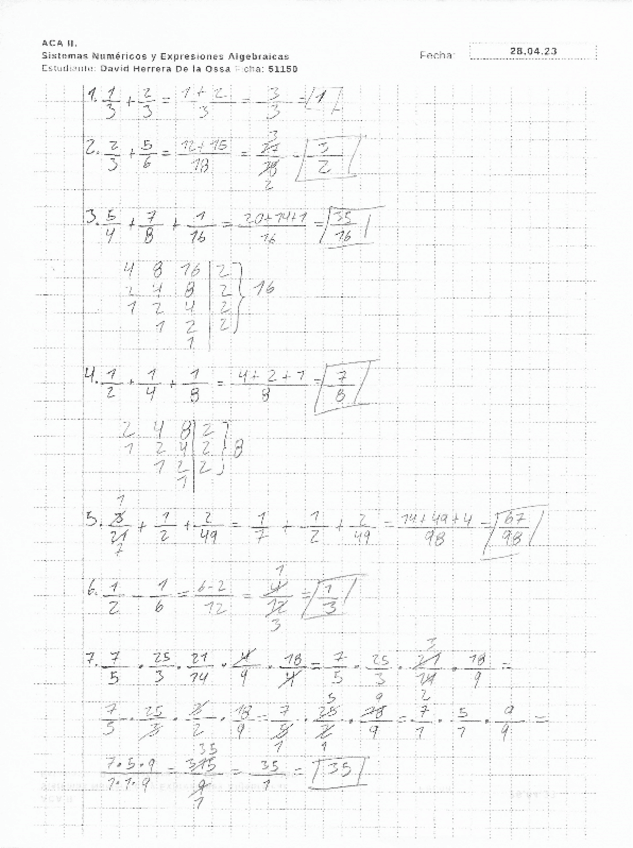 ACA II.
Sistemas Numéricos y Expresiones Algebraicas
Fecha: 28.04.23
Estudiante: David Herrera De la Ossa Ficha: 51150
1. 1/3 + 2/3 = 1+2/3 = 3/3 = 1
2. 2/3 + 5/6 = 12+15/18 = 27/18 = 3/2
3. 5/4 + 7/8 + 1/16 = 20+14+1/16 = 35/16
4 8 16 | 2
2 4 8 | 2 } 16
1 2 4 | 2
1 2 | 2
1
4. 1/2 + 1/4 + 1/8 = 4+2+1/8 = 7/8
2 4 8 | 2
1 2 4 | 2 } 8
1 2 | 2
1
5. 3/21 + 1/2 + 2/49 = 1/7 + 1/2 + 2/49 = 14+49+4/98 = 67/98
6. 1/2 - 1/6 = 6-2/12 = 4/12 = 1/3
7. 7/5 · 25/3 · 21/14 · 4/9 · 18/4 = 7/5 · 25/3 · 21/14 · 18/9 =
7/5 · 25/3 · 3/2 · 18/9 = 7/5 · 25/2 · 18/9 = 7/1 · 5/1 · 9/9 =
7·5·9/1·1·9 = 315/9 = 35/1 = 35